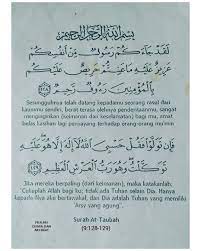 بِسْمِ اللَّهِ الرَّحْمَٰنِ الرَّحِيمِ
لَقَدْ جَاءَكُمْ رَسُولٌ مِنْ أَنْفُسِكُمْ
عَزِيزٌ عَلَيْهِ مَا عَنِتُّمْ حَرِيصٌ عَلَيْكُمْ
بِالْمُؤْمِنِينَ رَءُوفٌ رَحِيمٌ ﴿١٢٨﴾
Sesungguhnya telah datang kepadamu seorang rasul dari
kaummu sendiri, berat terasa olehnya penderitaanmu, sangat
menginginkan (keimanan dan keselamatan) bagi mu, amat
belas kasihan lagi penyayang terhadap orang-orang mu'min
فَإِنْ تَوَلَّوْا فَقُلْ حَسْبِيَ اللَّهُ لَا إِلَٰهَ إِلَّا هُوَ عَلَيْهِ
تَوَكَّلْتُ وَهُوَ رَبُّ الْعَرْشِ الْعَظِيمِ
Jika mereka berpaling (dari keimanan), maka katakanlah:
"Cukuplah Allah bagi ku; tidak ada Tuhan selain Dia. Hanya
kepada Nya aku bertawakkal, dan Dia adalah Tuhan yang memiliki
'Arsy yang agung".
Surah At-Taubah
(9:128-129)